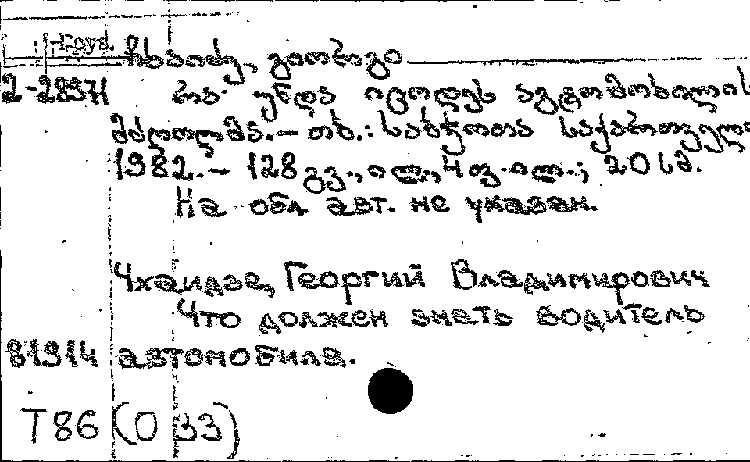 ჩხაიძე, გიორგი
2-22971 რა უნდა იცოდეს ავტომობილის
მძღოლმა. – თბ.: საბჭოთა საქართველო
1982. – 128 გვ., ილ., 4 ფ. ილ.; 20 სმ.
На обл. авт. не указан.
Чхаидзе, Георгий Владимирович
Что должен знать водитель
81914 автомобиля.
Т86 (0 33)